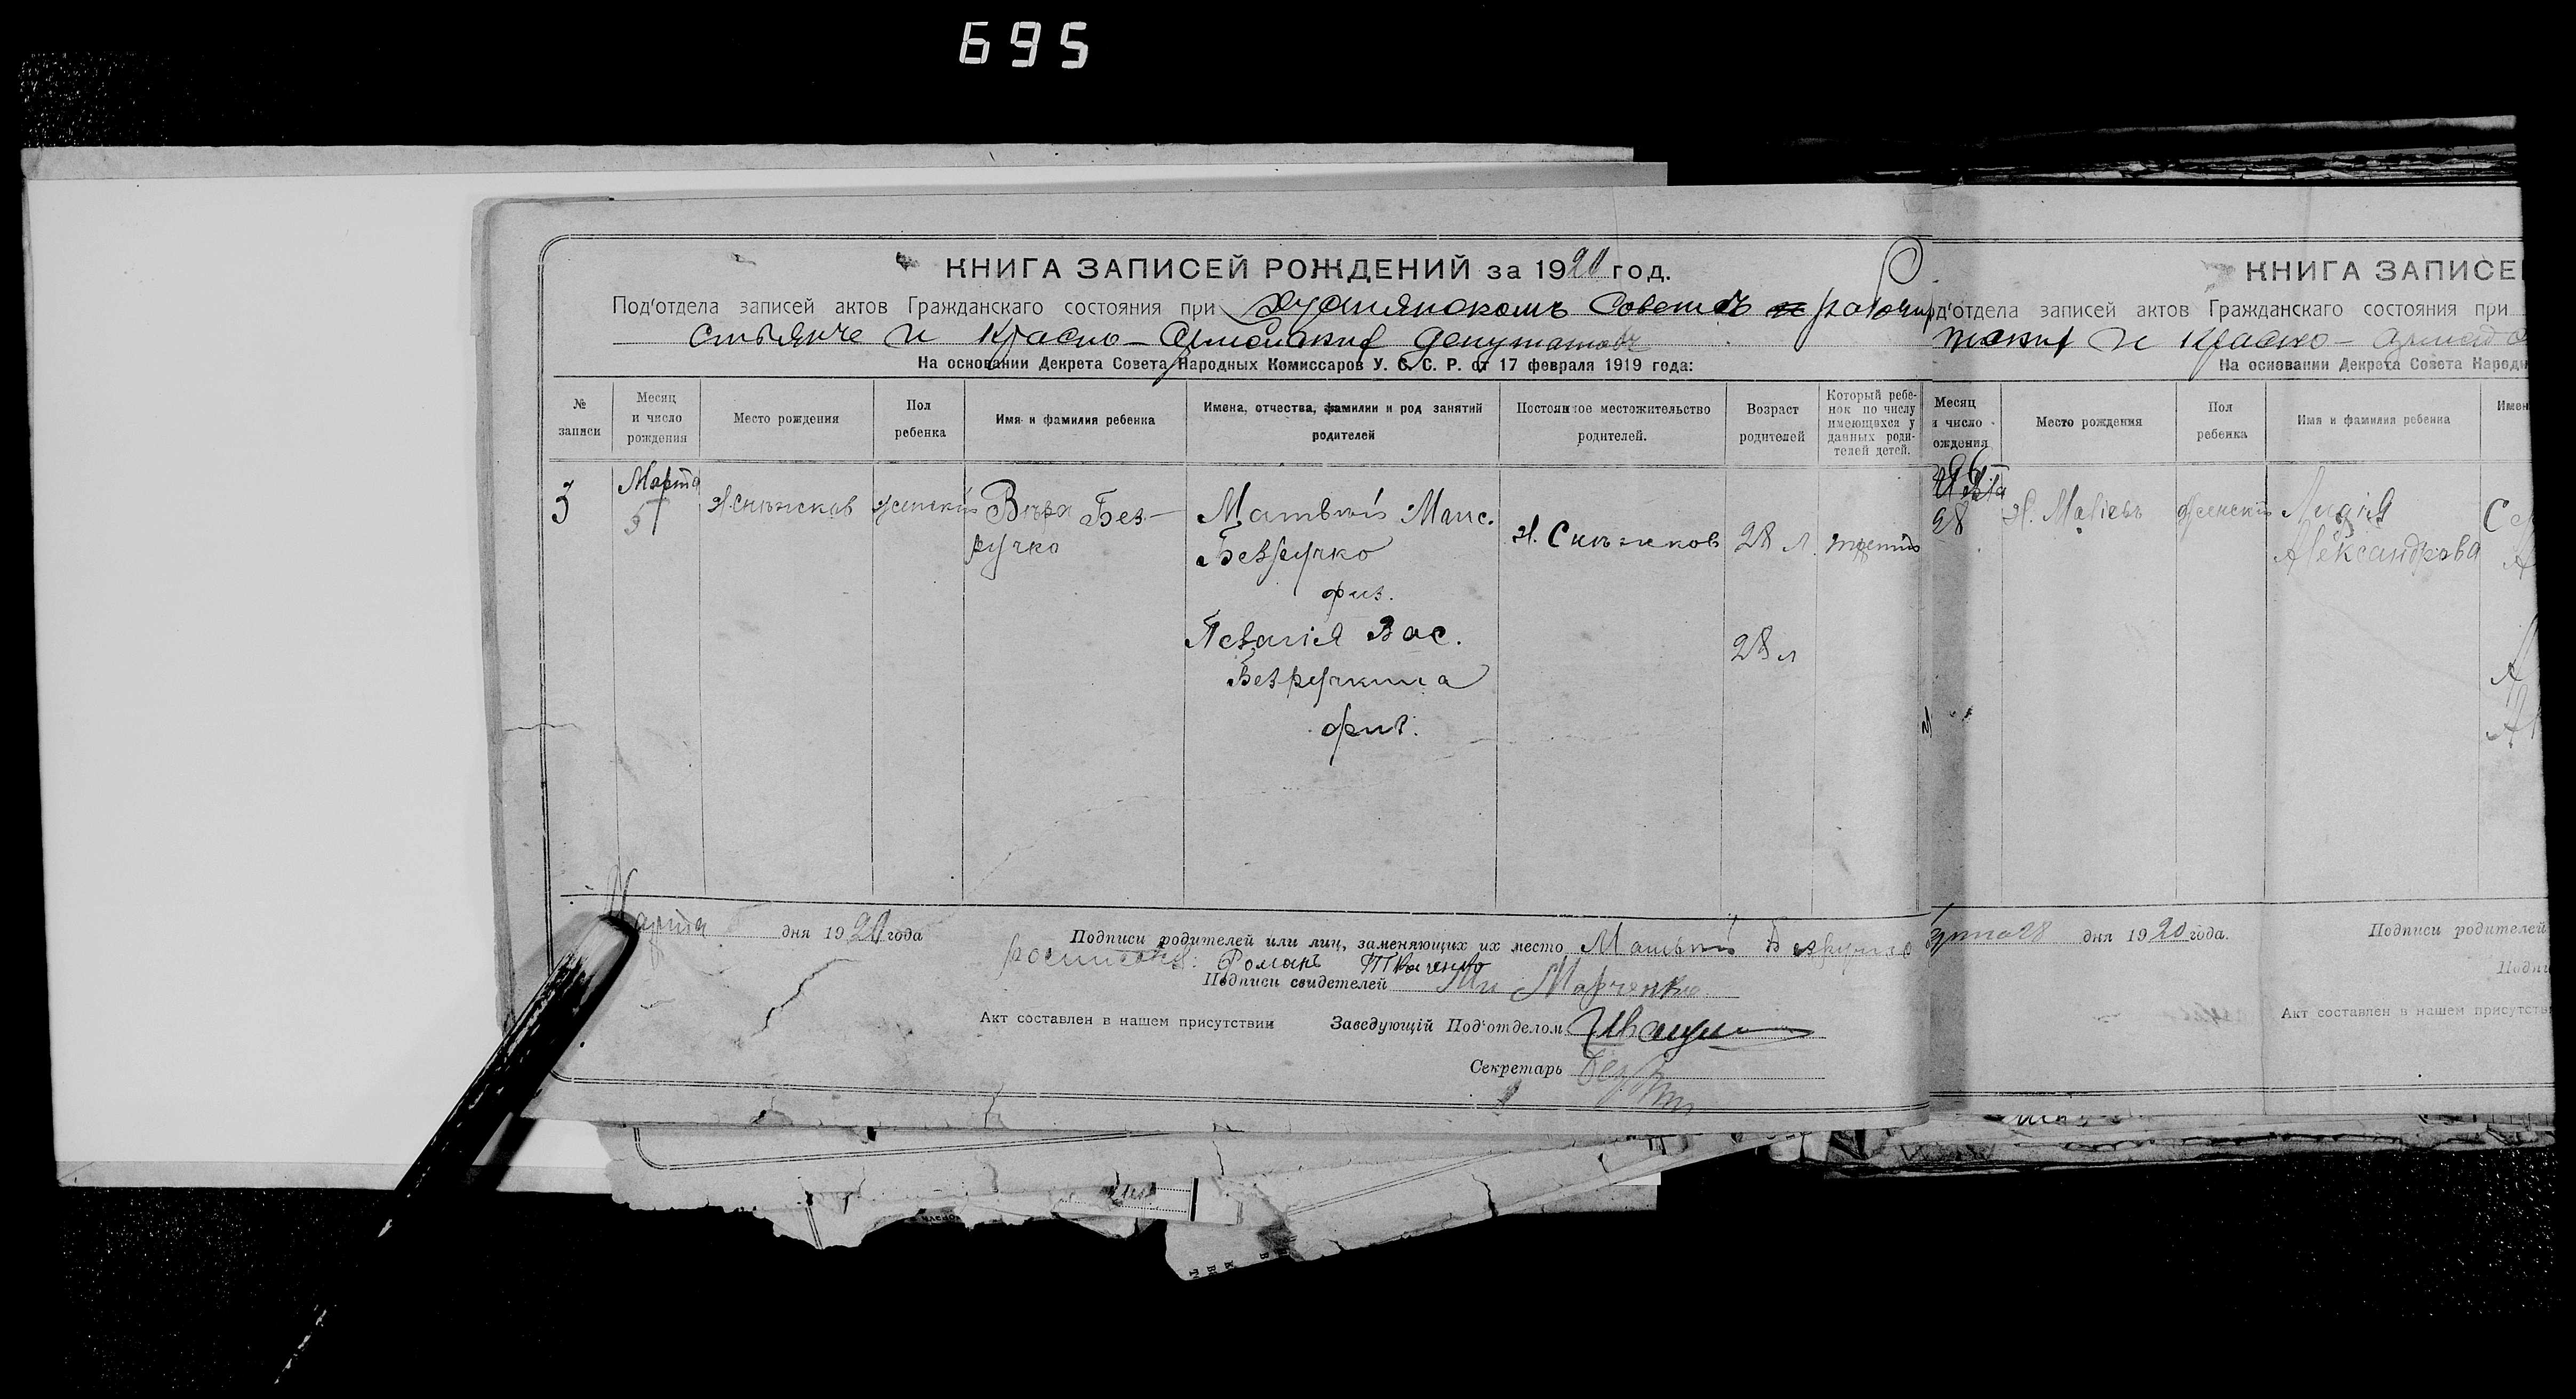 695
КНИГА ЗАПИСЕЙ РОЖДЕНИЙ за 1920 год.
Под'отдела записей актов Гражданскаго состояния при Хутянскомъ Советѣ рабочи
стьянче и Красно-Армейских депутатовъ
На основании Декрета Совета Народных Комиссаров У. С. С. Р. от 17 февраля 1919 года:
№ записи
Месяц и число рождения
Место рождения
Пол ребенка
Имя и фамилия ребенка
Имена, отчества, фамилии и род занятий родителей
Постоянное местожительство родителей.
Возраст родителей
Который ребенок по числу имеющихся у данных родителей детей.
3
Марта
5
х. Снѣжков
женскій
Вѣра Без-
ручко
Матвѣй Макс.
Безручко
физ.
Пелагія Вас.
Безручкина
физ.
х. Снѣжков
28 л.
28 л
третій
Марта дня 1920 года
Подписи родителей или лиц, заменяющих их место Матвѣй Безручко
Роман Ткаченко
Подписи свидетелей Марченко
Акт составлен в нашем присутствии
Заведующій Под'отделом
Секретарь
КНИГА ЗАПИСЕ
д'отдела записей актов Гражданскаго состояния при
и Красно-
На основании Декрета Совета Народн
Месяц
и число
ождения
Место рождения
Пол ребенка
Имя и фамилия ребенка
Имен
28
женскій
Лидія
Александрова
28 дня 1920 года.
Подписи родителей
Подпи
Акт составлен в нашем присутств